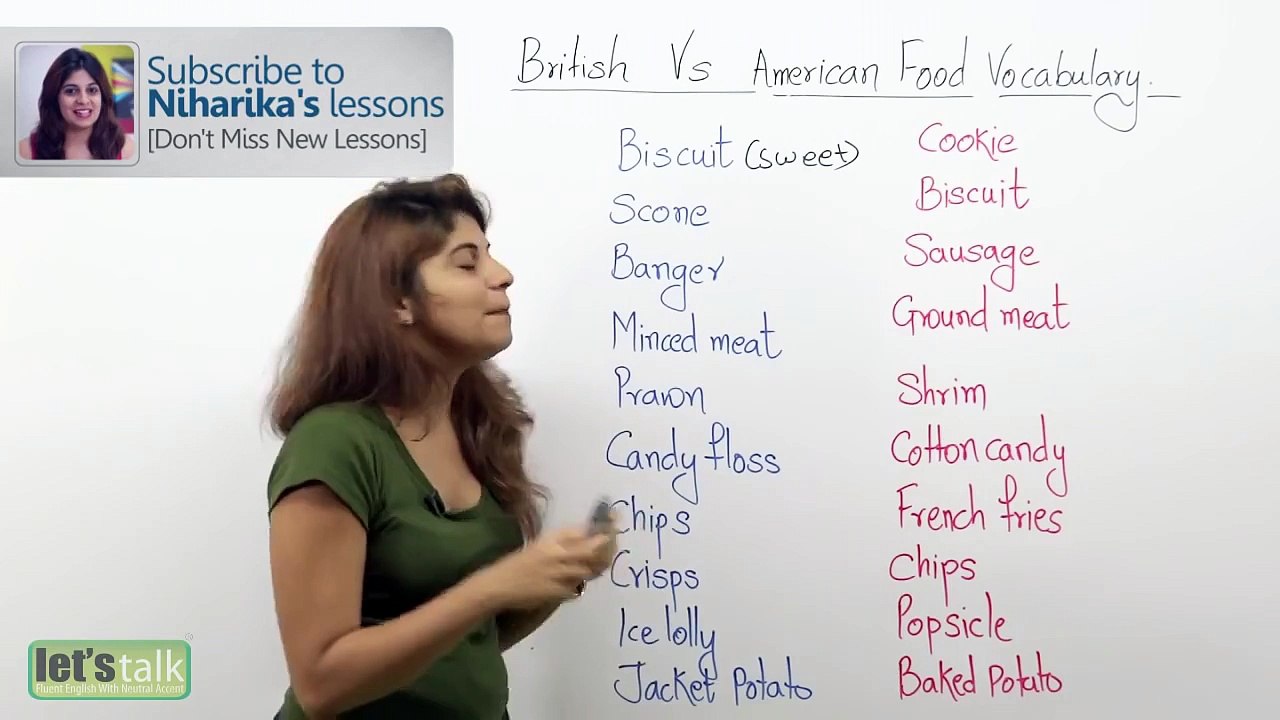 Subscribe to
Niharika's lessons
[Don't Miss New Lessons]
British Vs American Food Vocabulary.
Biscuit (sweet) Cookie
Scone Biscuit
Banger Sausage
Minced meat Ground meat
Prawn Shrim
Candy floss Cotton candy
Chips French fries
Crisps Chips
Ice lolly Popsicle
Jacket Potato Baked Potato
let's talk
Fluent English With Neutral Accent